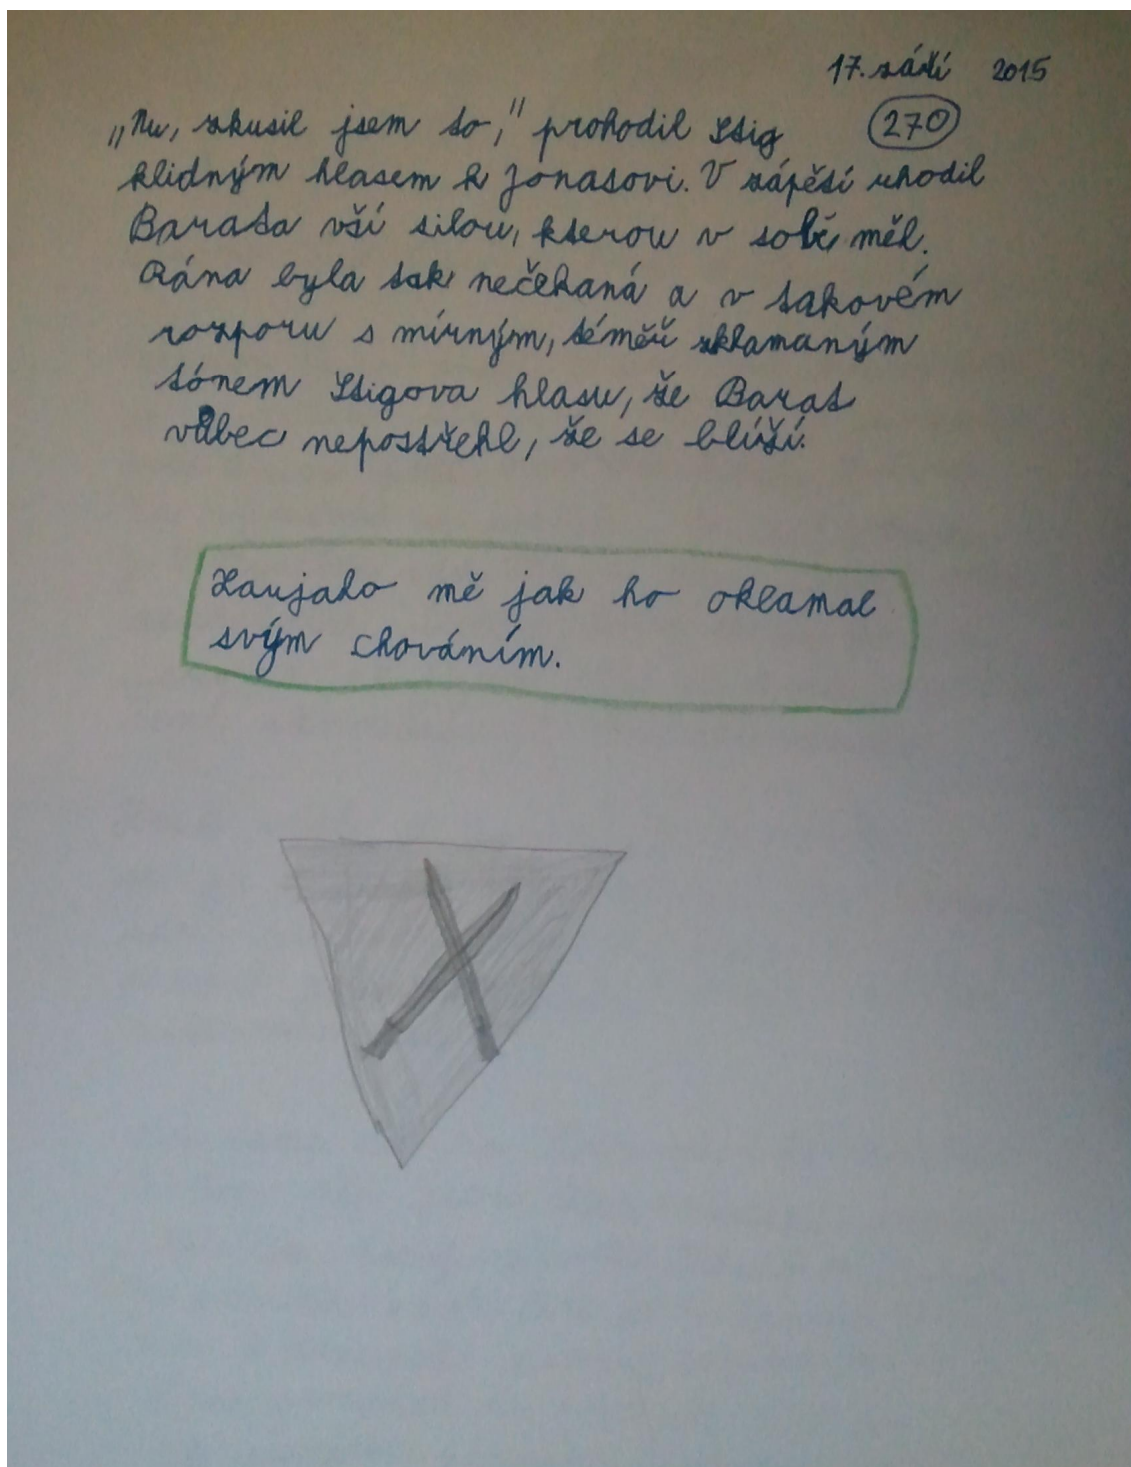 17. září 2015
„Nu, zkusil jsem to," prohodil Stig 270
klidným hlasem k Jonasovi. V zápětí uhodil
Barata vší silou, kterou v sobě měl.
Rána byla tak nečekaná a v takovém
rozporu s mírným, téměř zklamaným
tónem Stigova hlasu, že Barat
vůbec nepostřehl, že se blíží.
Zaujalo mě jak ho oklamal
svým chováním.